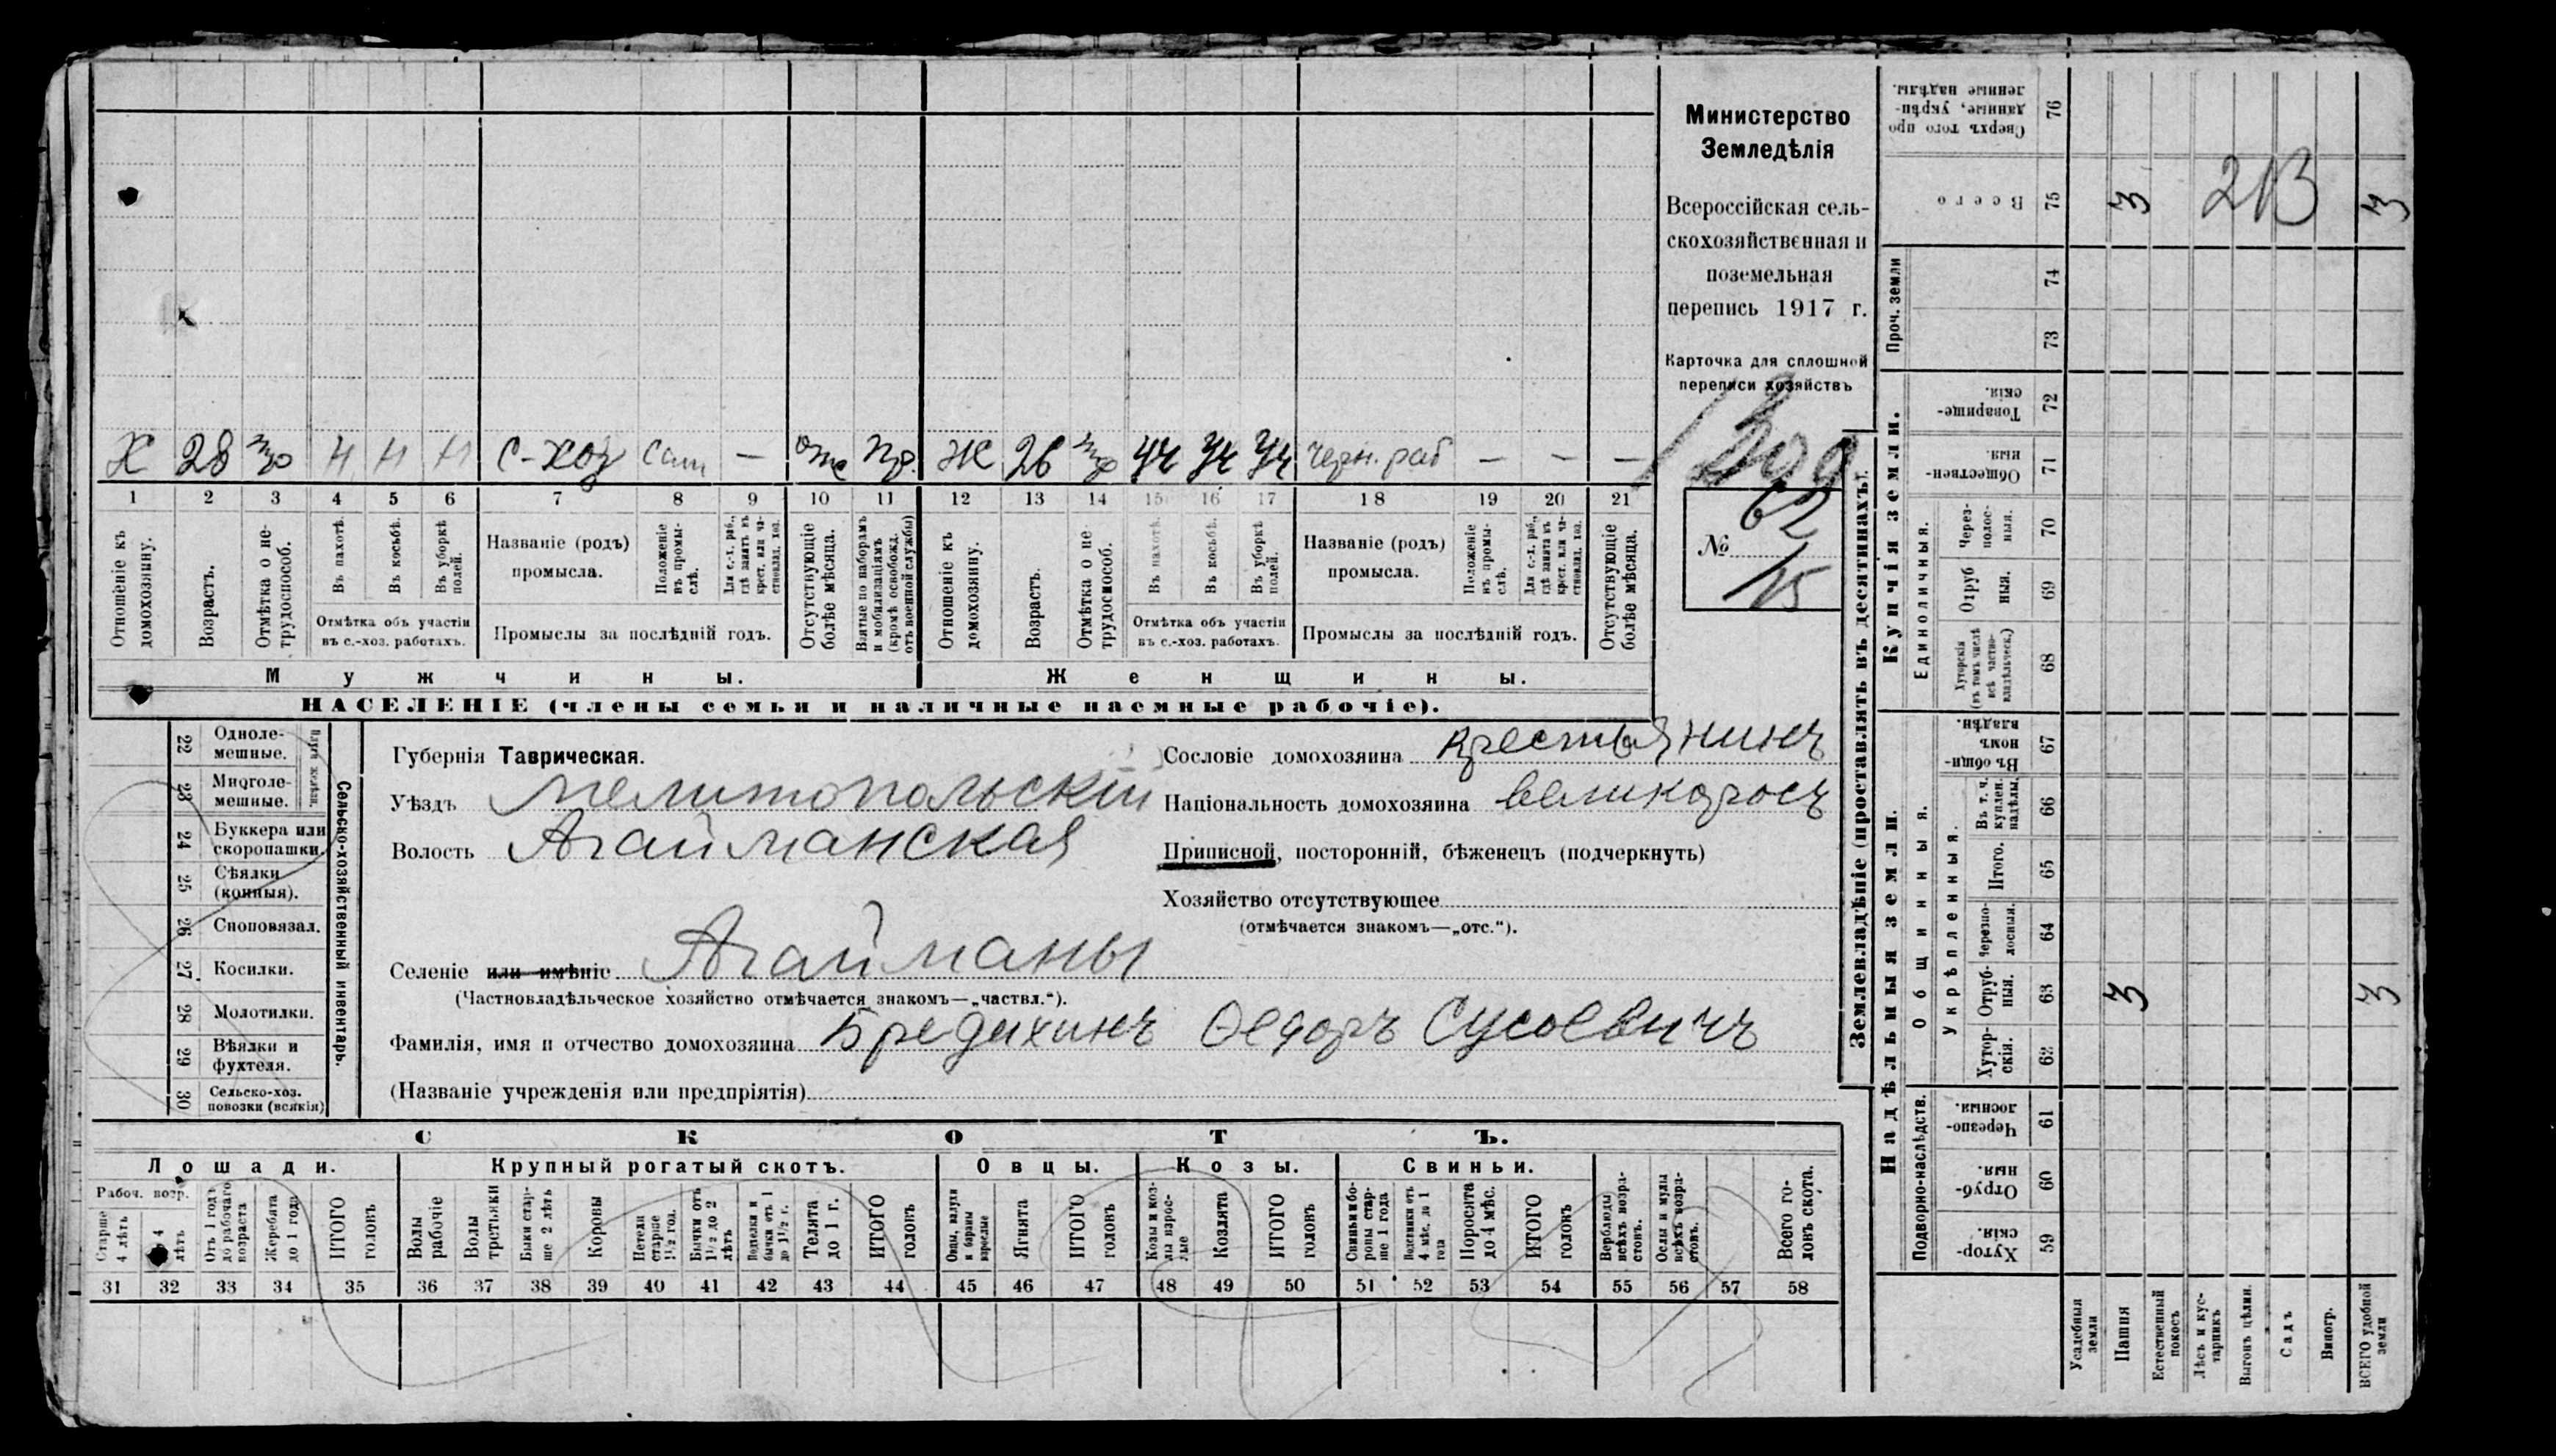 Х 28 тр Н Н Н С-хоз Сам — отс пр. Ж 26 тр уч уч уч Черн. раб — — —
1 2 3 4 5 6 7 8 9 10 11 12 13 14 15 16 17 18 19 20 21
Отношеніе къ домохозяину.
Возрастъ.
Отмѣтка о не-
трудоспособ.
Въ пахотѣ.
Въ косьбѣ.
Въ уборкѣ полей.
Отмѣтка объ участіи
въ с.-хоз. работахъ.
Названіе (родъ)
промысла.
Положеніе въ промы-
слѣ.
Для с.-х. раб., гдѣ занятъ въ крест. или ча-
стновлад. хоз.
Промыслы за послѣдній годъ.
Отсутствующіе болѣе мѣсяца.
Взятые по наборамъ и мобилизаціямъ (кромѣ освобожд. отъ военной службы)
Отношеніе къ домохозяину.
Возрастъ.
Отмѣтка о не-
трудоспособ.
Въ пахотѣ.
Въ косьбѣ.
Въ уборкѣ полей.
Отмѣтка объ участіи
въ с.-хоз. работахъ.
Названіе (родъ)
промысла.
Положеніе въ промы-
слѣ.
Для с.-х. раб., гдѣ занята въ крест. или ча-
стновлад. хоз.
Промыслы за послѣдній годъ.
Отсутствующіе болѣе мѣсяца.
Мужчины.
Женщины.
НАСЕЛЕНІЕ (члены семьи и наличные наемные рабочіе).
Министерство
Земледѣлія
Всероссійская сель-
скохозяйственная и
поземельная
перепись 1917 г.
Карточка для сплошной
переписи хозяйствъ
№ 62
15
22 Одноле-
мешные.
23 Многоле-
мешные.
Плуги желѣзн.
24 Буккера или
скоропашки.
25 Сѣялки
(конныя).
26 Сноповязал.
27 Косилки.
28 Молотилки.
29 Вѣялки и
фухтеля.
30 Сельско-хоз.
повозки (всякія)
Сельско-хозяйственный инвентарь.
Губернія Таврическая.
Уѣздъ Мелитопольскій
Волость Агайманская
Селеніе или имѣніе Агайманы
(Частновладѣльческое хозяйство отмѣчается знакомъ—„частвл.“).
Фамилія, имя и отчество домохозяина Бредихинъ Ѳедоръ Сусоевичъ
(Названіе учрежденія или предпріятія)
Сословіе домохозяина крестьянинъ
Національность домохозяина великоросъ
Приписной, посторонній, бѣженецъ (подчеркнуть)
Хозяйство отсутствующее
(отмѣчается знакомъ—„отс.“).
СКОТЪ.
Лошади.
Крупный рогатый скотъ.
Овцы.
Козы.
Свиньи.
Рабоч. возр.
Старше 4 лѣтъ
4 лѣтъ
Отъ 1 года до рабочаго возраста
Жеребята до 1 года
ИТОГО головъ
Волы рабочіе
Волы третьяки
Быки стар-
ше 2 лѣтъ
Коровы
Нетели старше 1½ год.
Бычки отъ 1½ до 2 лѣтъ
Подтелки и бычки отъ 1 до 1½ г.
Телята до 1 г.
ИТОГО головъ
Овцы, валухи и бараны взрослые
Ягнята
ИТОГО головъ
Козы и коз-
лы взрос-
лые
Козлята
ИТОГО головъ
Свиньи и бо-
ровы стар-
ше 1 года
Подсвинки отъ 4 мѣс. до 1 года
Поросята до 4 мѣс.
ИТОГО головъ
Верблюды всѣхъ возра-
стовъ.
Ослы и мулы всѣхъ возра-
стовъ.
Всего го-
ловъ скота.
31 32 33 34 35 36 37 38 39 40 41 42 43 44 45 46 47 48 49 50 51 52 53 54 55 56 57 58
Землевладѣніе (проставлять въ десятинахъ).
Надѣльныя земли.
Купчія земли.
Проч. земли
Подворно-наслѣдств.
Общинныя.
Укрѣпленныя.
Единоличныя.
Сверхъ того про
данные, укрѣп-
ленные надѣлы. 76
Всего 75 3 213 3
74
73
Товарище-
скія. 72
Обществен-
ныя. 71
Через-
полос-
ныя. 70
Отруб
ныя. 69
Хуторскія
(въ томъ числѣ
всѣ частно-
владѣльческ.) 68
Въ общи-
номъ
владѣн. 67
Въ т. ч.
куплен.
надѣлы. 66
Итого. 65
Черезпо-
лосныя. 64
Отруб-
ныя. 63 3 3
Хутор-
скія. 62
Черезпо-
лосныя. 61
Отруб-
ныя. 60
Хутор-
скія. 59
Усадебныя земли
Пашня
Естественный покосъ
Лѣсъ и кус-
тарникъ
Выгонъ цѣлин.
Садъ
Виногр.
ВСЕГО удобной земли